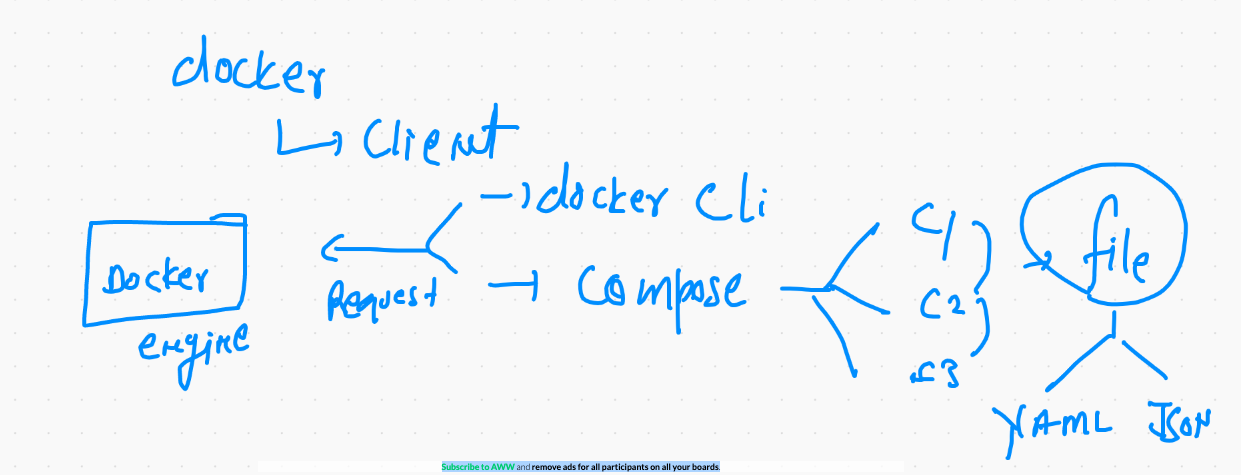 docker
Client
docker Cli
C1
file
Docker
Request
Compose
C2
engine
C3
YAML JSON
Subscribe to AWW and remove ads for all participants on all your boards.